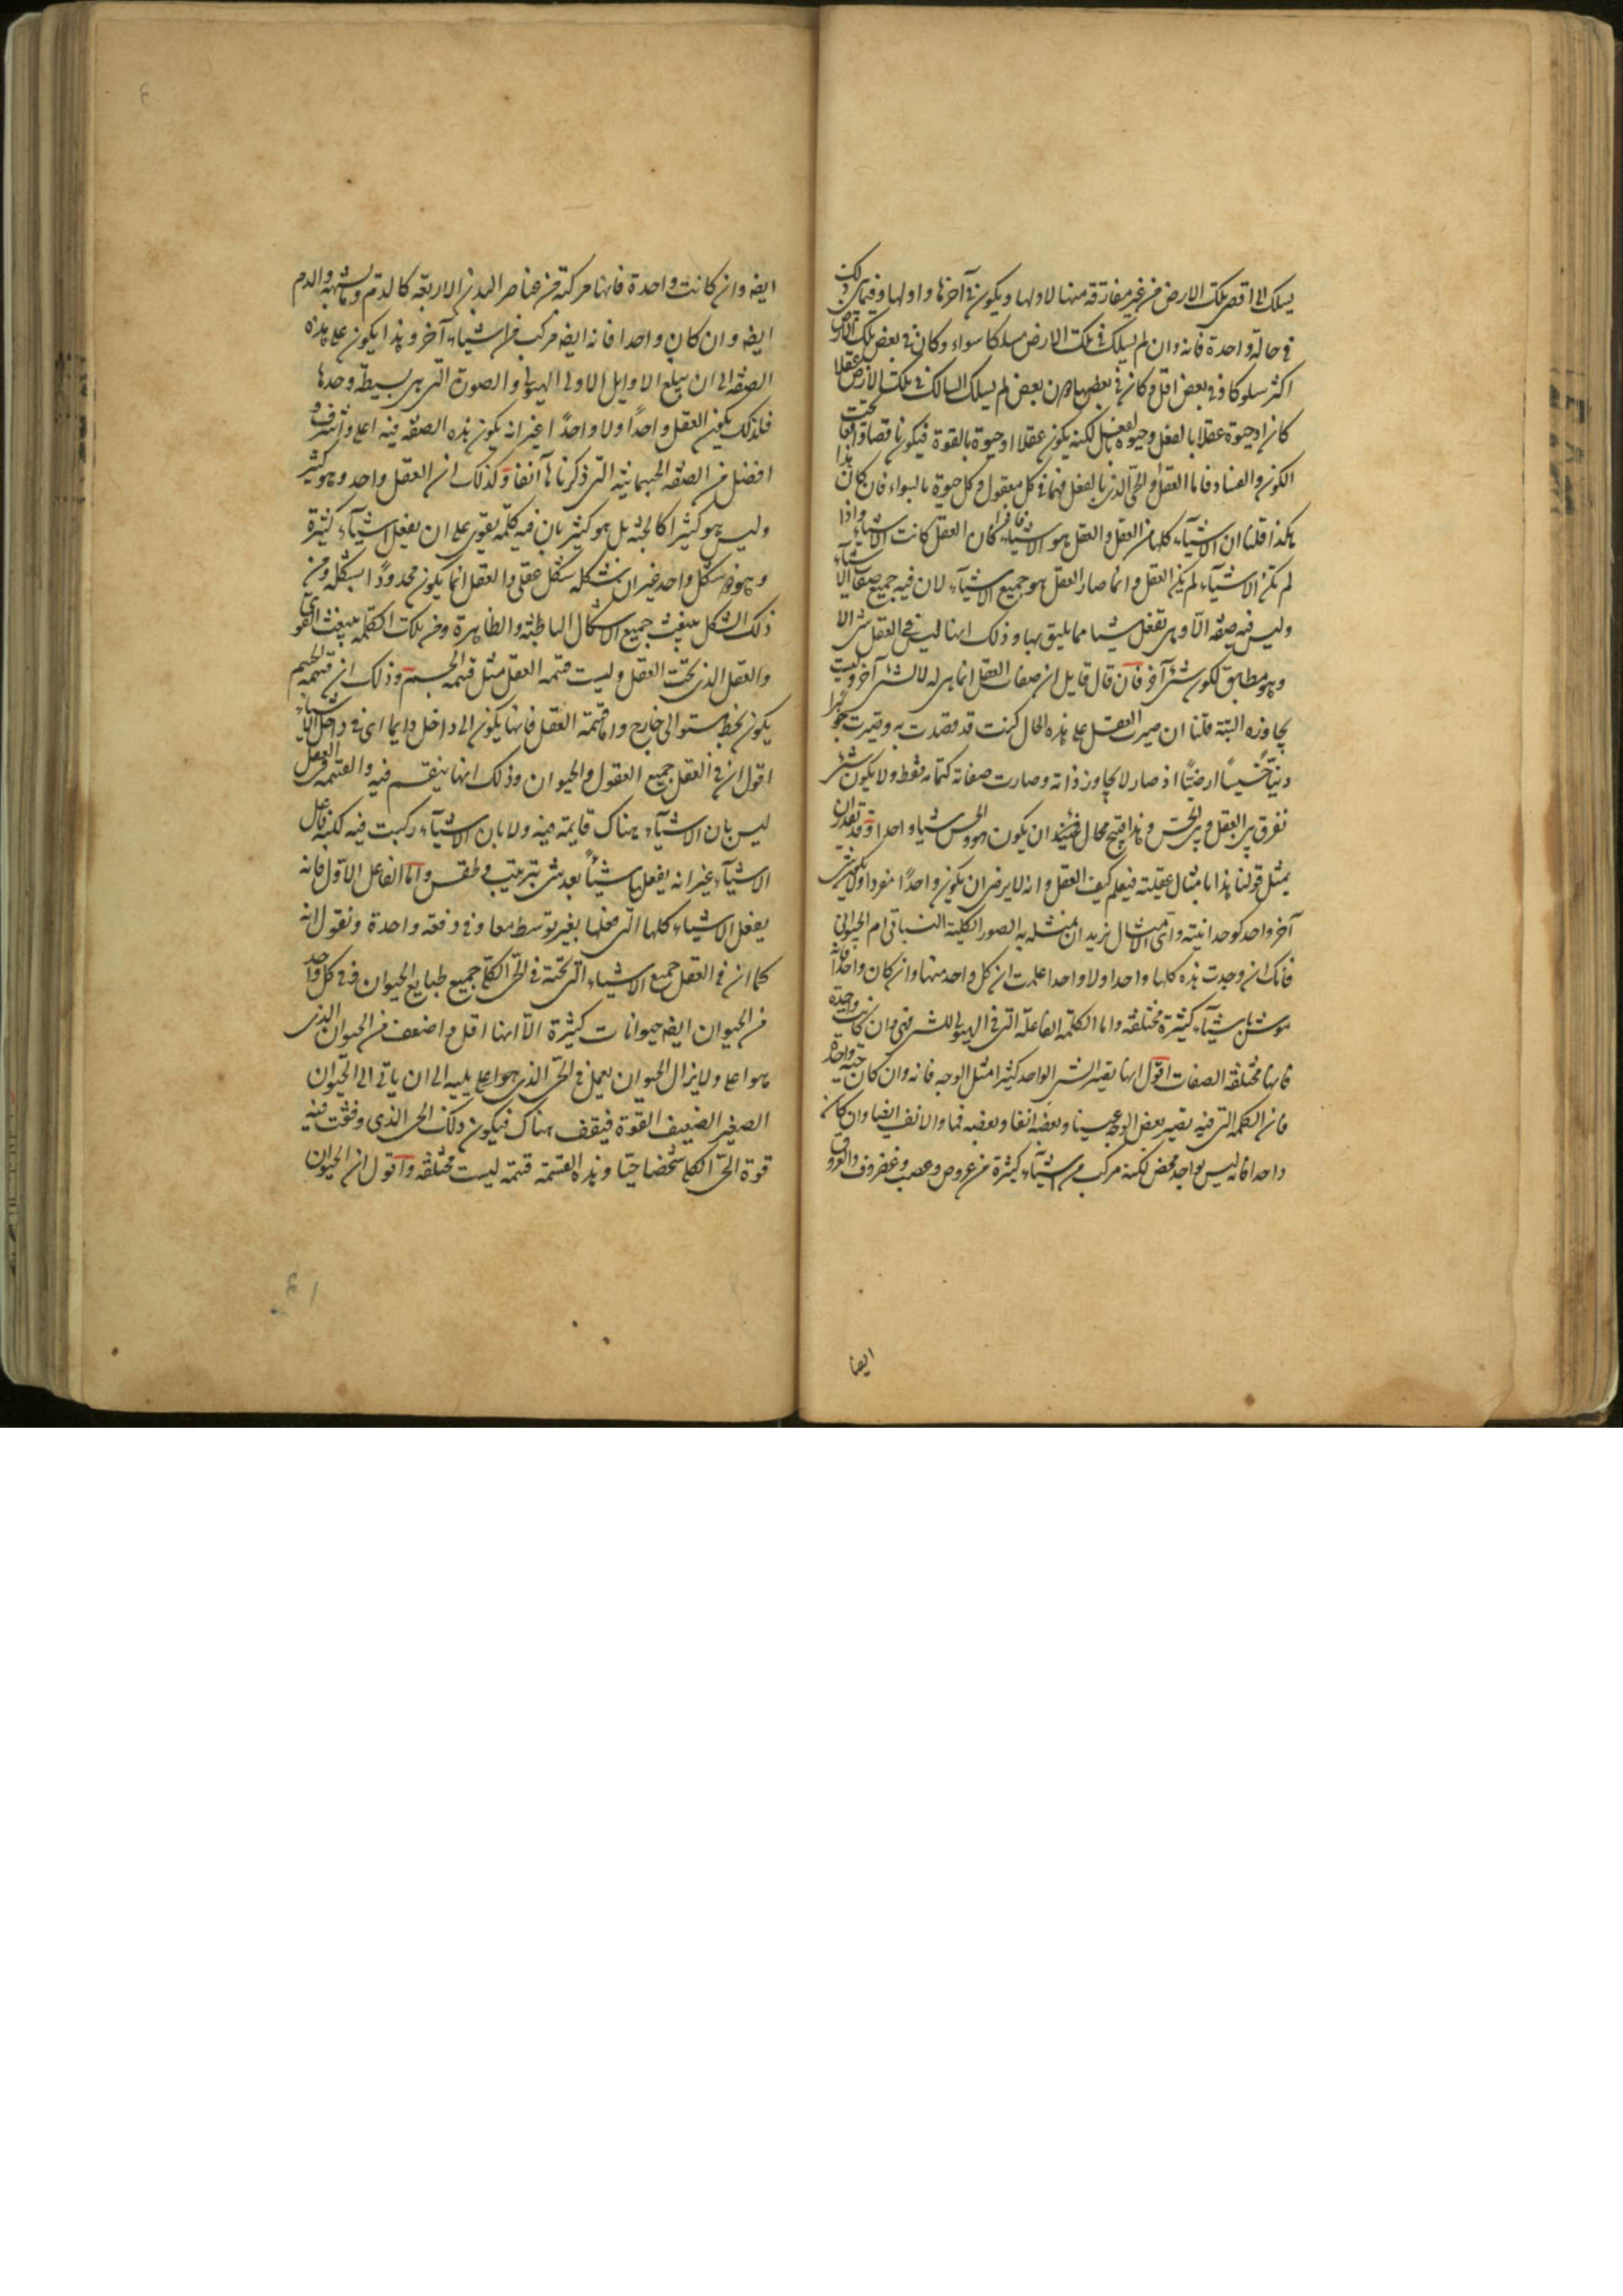 يسلك الى اقصى تلك الارض من غير مفارقة منها لاولها ويكون في آخرها واولها وفيما بين ذلك
في حالة واحدة فانه وان لم يسلك في تلك الارض مسلكا سواء وكان في بعض تلك الارض
اكثر سلوكا وفي بعض اقل وكان في بعض دون بعض لم يسلك السالك في تلك الارض عقلا
كان او حيوة عقلا بالفعل وحيوة بالفعل لكنه يكون عقلا او حيوة بالقوة فيكون ناقصا واقعا تحت
الكون والفساد فاما العقل والحي الذي بالفعل فهما في كل معقول وكل حيوة بالسواء فان كان هذا
هكذا قلنا ان الاشياء كلها من العقل والعقل هو الاشياء فاذا كان العقل كانت الاشياء واذا
لم تكن الاشياء لم يكن العقل وانما صار العقل هو جميع الاشياء لان فيه جميع صفات الاشياء
وليس فيه صفة الا وهي تفعل شيئا مما يليق بها وذلك انها ليس في العقل شئ الا
وهو مطابق لكون شئ آخر فان قال قايل ان صفات العقل انما هي له لا لشئ آخر وليست
تجاوزه البتة قلنا ان صيرت العقل على هذه الحال كنت قد قصدت به وصيرت جوهرا
دنيا خسيسا ارضيا اذ صار لا يجاوز ذاته وصارت صفاته كتمامه فقط ولا يكون شئ
نفرق بين العقل وبين الحس وهذا قبيح محال ان يكون هو والحس شيئا واحدا وقد نقدر ان
نمثل قولنا هذا بامثال عقلية فنعلم كيف العقل وانه لا يرضى ان يكون واحدا مفردا ولا يكون شئ
آخر واحد كوحدانيته واي الامثال نريد ان نمثله به الصور الكلية النباتي ام الحيواني
فانك ان وجدت هذه كلها واحدا ولا واحدا علمت ان كل واحد منها وان كان واحدا فانه
موشى باشياء كثيرة مختلفة واما الكلمة الفاعلة التي في الهيولى للشئ فهي وان كانت واحدة
فانها مختلفة الصفات اقول انها تصير الشئ الواحد كثيرا مثل الوجه فانه وان كان جثة واحدة
فان الكلمة التي فيه تصير بعض الوجه عينا وبعضه انفا وبعضه فما والانف ايضا وان كان
واحدا فانه ليس بواحد محض لكنه مركب من اشياء كثيرة من عروق وعصب وغضروف والعروق
ايضا
ايضا وان كانت واحدة فانها مركبة من عناصر البدن الاربعة كالدم وما يشبهه والدم
ايضا وان كان واحدا فانه ايضا مركب من اشياء آخر وهذا يكون على هذه
الصفة الى ان يبلغ الاوايل الاولى الهيولى والصورة التي هي بسيطة وحدها
فلذلك يكون العقل واحدا ولا واحدا غير انه يكون هذه الصفة فيه اعلى واشرف و
افضل من الصفة الجسمانية التي ذكرناها آنفا وكذلك ان العقل واحد وهو كثير
وليس هو كثيرا كالجثة بل هو كثير بان فيه كلمة يقوى على ان يفعل اشياء كثيرة
وهو ذو شكل واحد غير ان شكله شكل عقلي والعقل انما يكون محدودا بشكله ومن
ذلك الشكل ينبعث جميع الاشكال الباطنة والظاهرة ومن تلك الكلمة ينبعث القوى
والعقل الذي تحت العقل وليست قسمة العقل مثل قسمة الجسم وذلك ان قسمة الجسم
يكون بخط مستو الى خارج واما قسمة العقل فانها يكون الى داخل دايما اي في داخل الاشياء
اقول ان في العقل جميع العقول والحيوان وذلك انها ينقسم فيه والقسمة في العقل
ليس بان الاشياء هناك قايمة فيه ولا بان الاشياء ركبت فيه لكنه فاعل
الاشياء غير انه يفعلها شيئا بعد شئ بترتيب وطقس واما الفاعل الاول فانه
يفعل الاشياء كلها التي فعلها بغير توسط معا وفي دفعة واحدة ونقول انه
كما ان في العقل جميع الاشياء التي تحته في الحي الكلي جميع طبايع الحيوان وفي كل واحد
من الحيوان ايضا حيوانات كثيرة الا انها اقل واضعف من الحيوان الذي
هو اعلى ولا يزال الحيوان يعمل في الحي الذي هو اعلى يليه الى ان ياتي الى الحيوان
الصغير الضعيف القوة فيقف هناك فيكون ذلك الحي الذي وقفت فيه
قوة الحي الكلي شخصا حيا وهذه القسمة قسمة ليست مختلفة واقول ان الحيوان